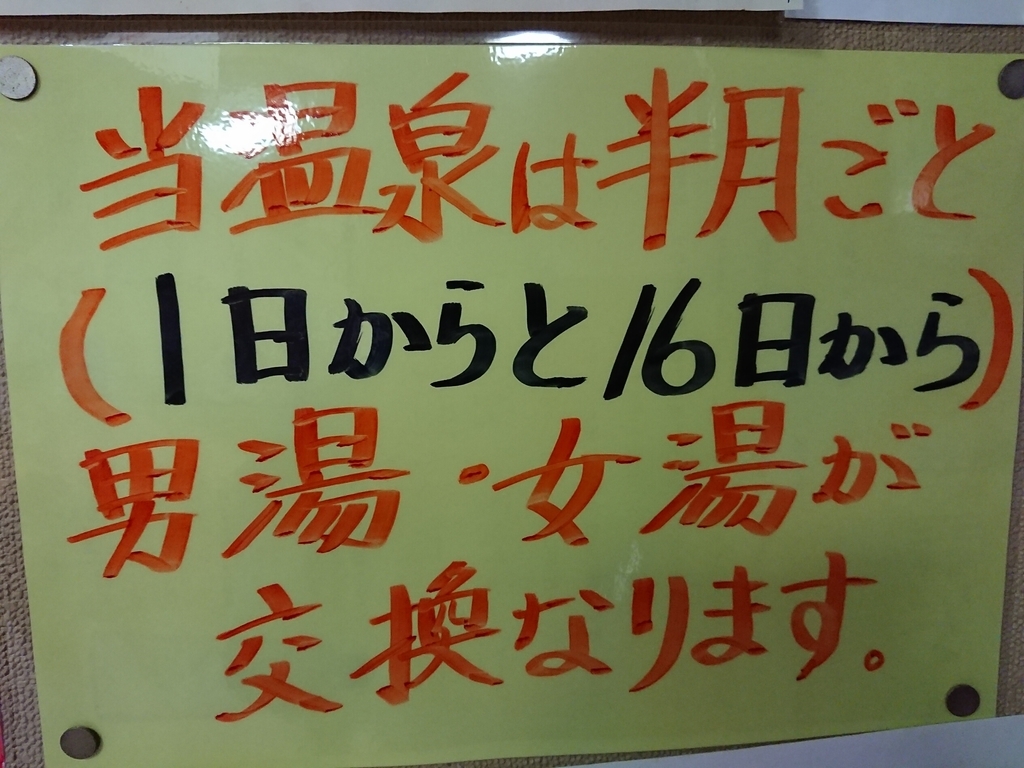 当温泉は半月ごと
(1日からと16日から)
男湯・女湯が
交換なります。